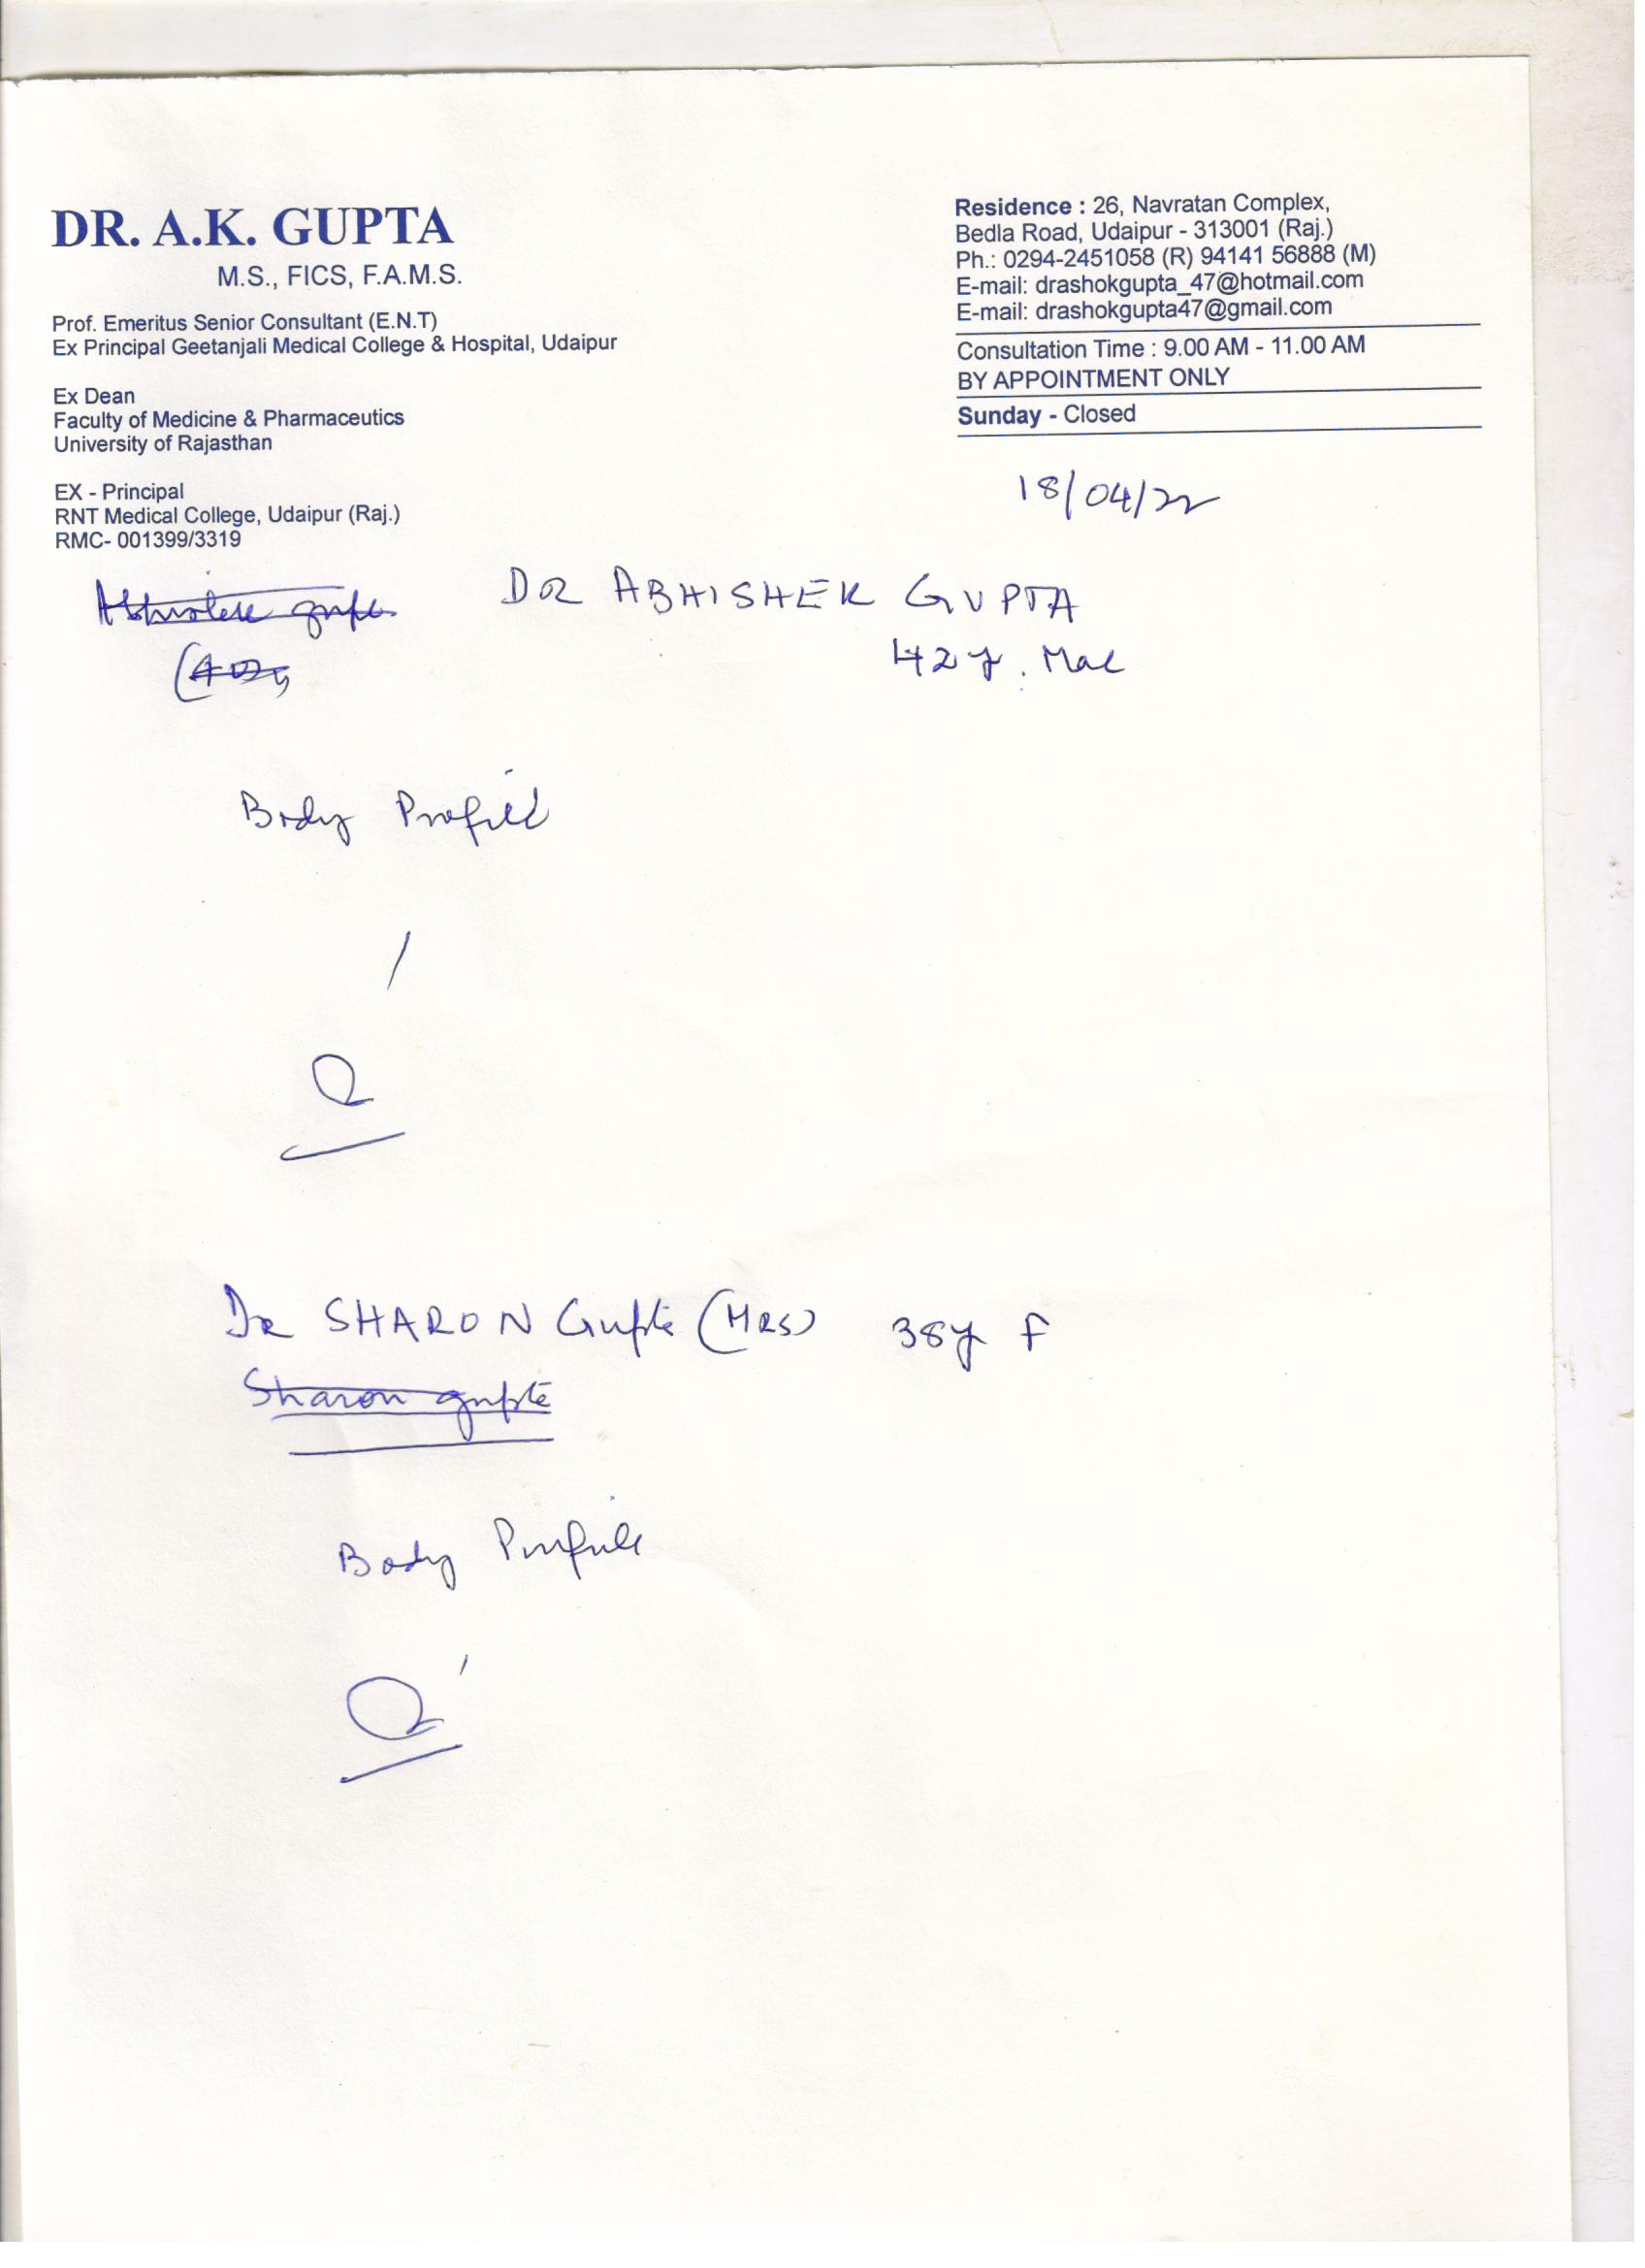 DR. A.K. GUPTA
M.S., FICS, F.A.M.S.
Prof. Emeritus Senior Consultant (E.N.T)
Ex Principal Geetanjali Medical College & Hospital, Udaipur
Ex Dean
Faculty of Medicine & Pharmaceutics
University of Rajasthan
EX - Principal
RNT Medical College, Udaipur (Raj.)
RMC- 001399/3319
Residence : 26, Navratan Complex,
Bedla Road, Udaipur - 313001 (Raj.)
Ph.: 0294-2451058 (R) 94141 56888 (M)
E-mail: drashokgupta_47@hotmail.com
E-mail: drashokgupta47@gmail.com
Consultation Time : 9.00 AM - 11.00 AM
BY APPOINTMENT ONLY
Sunday - Closed
18/04/22
DR ABHISHEK GUPTA
42y. Male
Body Profile
Dr SHARON Gupta (MRS) 38y F
Sharon gupta
Body Profile